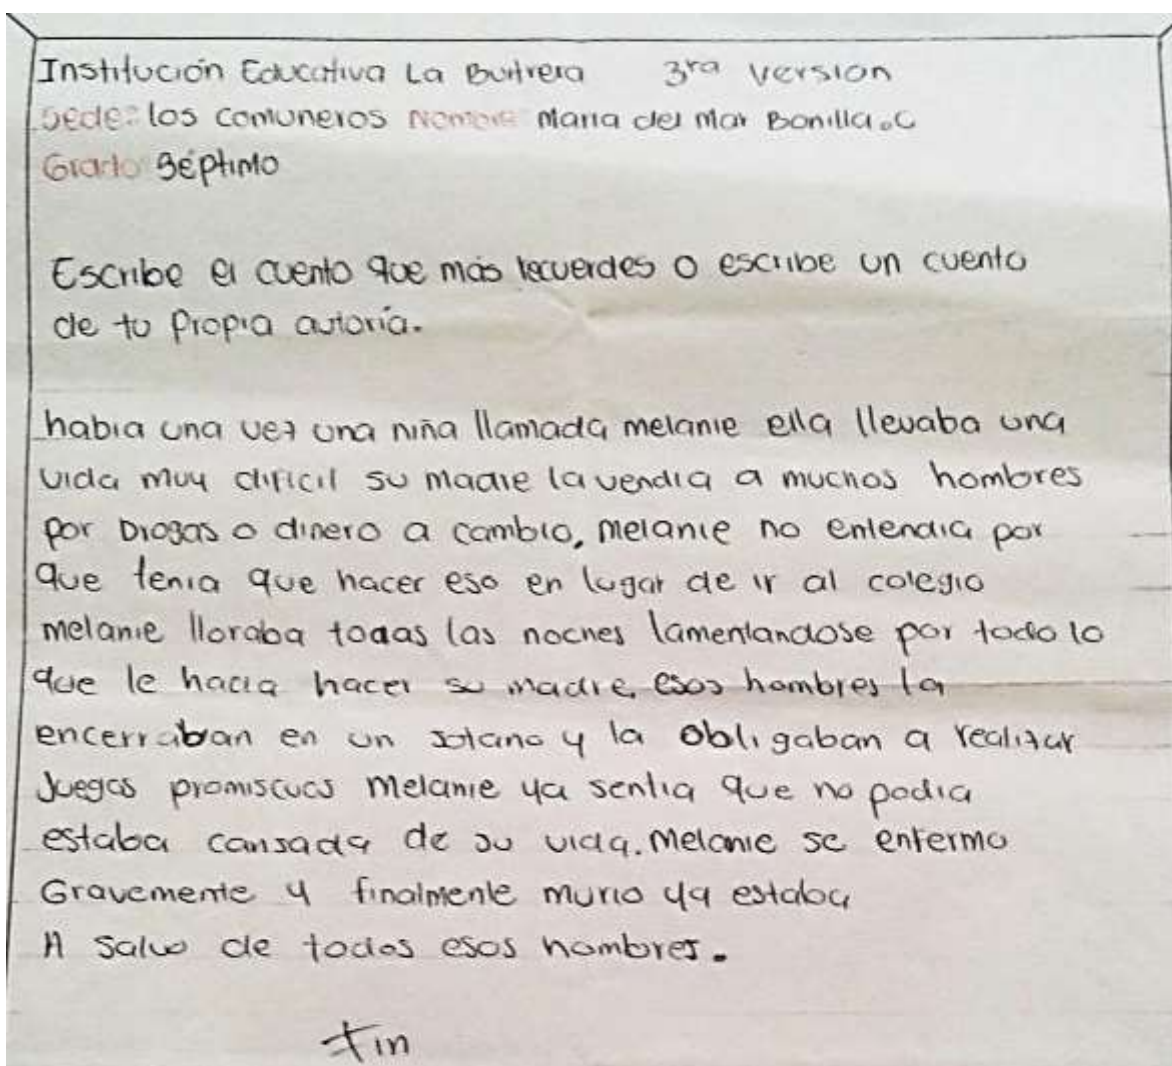 Institución Educativa La Buitrera 3ra Version
Sede: los comuneros Nombre Maria del Mar Bonilla.C
Grado Séptimo
Escribe el cuento que más recuerdes o escribe un cuento
de tu Propia autoría.
habia una vez una niña llamada melanie ella llevaba una
vida muy dificil su madre la vendia a muchos hombres
por Drogas o dinero a cambio, melanie no entendia por
que tenia que hacer eso en lugar de ir al colegio
melanie lloraba todas las noches lamentandose por todo lo
que le hacia hacer su madre, esos hombres la
encerraban en un sotano y la obligaban a realizar
Juegos promiscuos Melanie ya sentia que no podia
estaba cansada de su vida. Melanie se enfermo
Gravemente y finalmente murio ya estaba
A salvo de todos esos hombres.
Fin